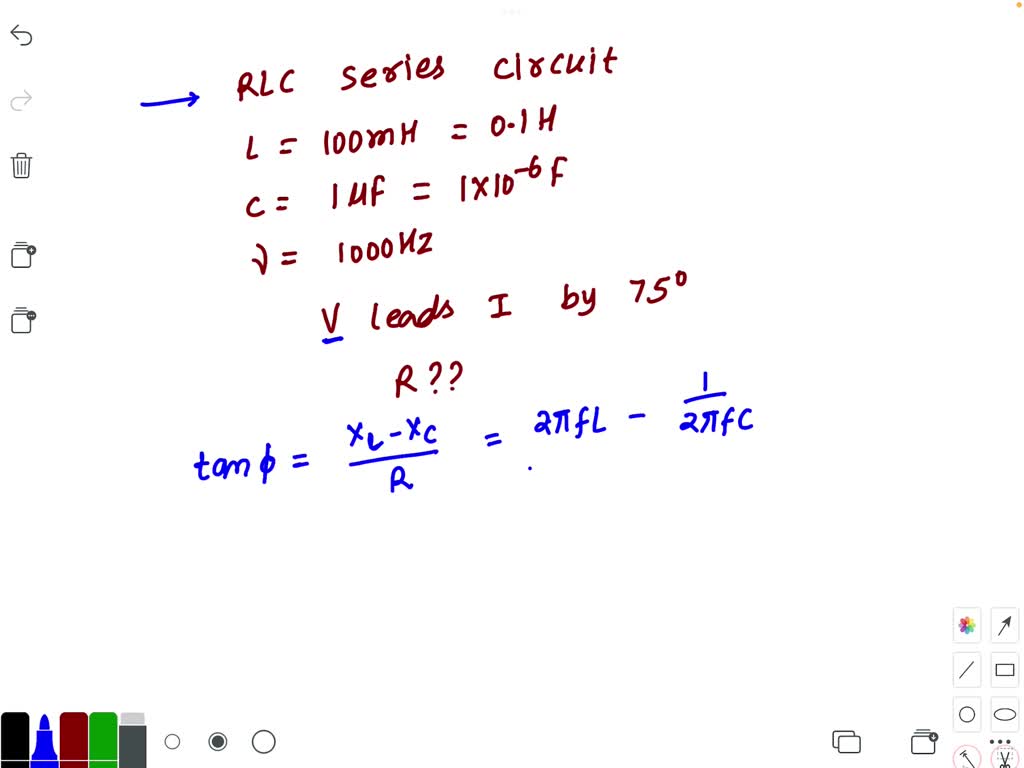 → RLC series circuit
L = 100mH = 0.1H
C = 1μf = 1×10⁻⁶ f
ν = 1000Hz
V leads I by 75°
R ??
tanϕ = (X_L - X_C)/R = 2πfL - 1/(2πfC)